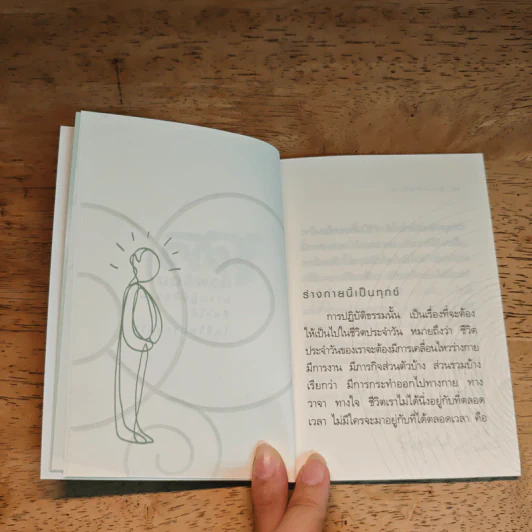 ร่างกายนี้เป็นทุกข์
การปฏิบัติธรรมนั้น เป็นเรื่องที่จะต้อง
ให้เป็นไปในชีวิตประจำวัน หมายถึงว่า ชีวิต
ประจำวันของเราจะต้องมีการเคลื่อนไหวร่างกาย
มีการงาน มีภารกิจส่วนตัวบ้าง ส่วนรวมบ้าง
เรียกว่า มีการกระทำออกไปทางกาย ทาง
วาจา ทางใจ ชีวิตเราไม่ได้นิ่งอยู่กับที่ตลอด
เวลา ไม่มีใครจะมาอยู่กับที่ได้ตลอดเวลา คือ